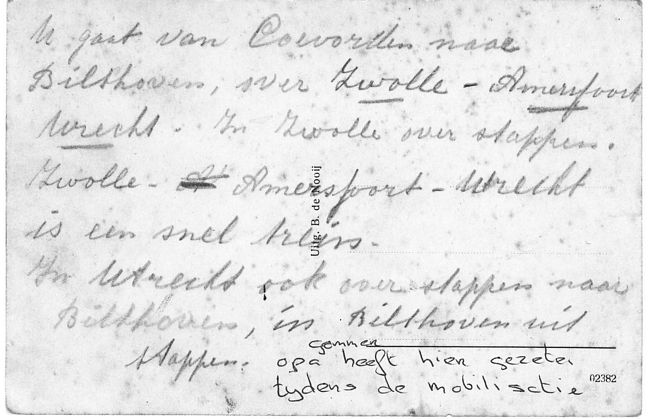 U gaat van Coevorden naar
Bilthoven, over Zwolle - Amersfoort
Utrecht. In Zwolle over stappen.
Zwolle - A Amersfoort - Utrecht
is een snel trein.
In Utrecht ook over stappen naar
Bilthoven, in Bilthoven uit
stappen.
Uitg. B. de Rooij
gommen
opa heeft hier gezeten
tydens de mobilisatie
02382